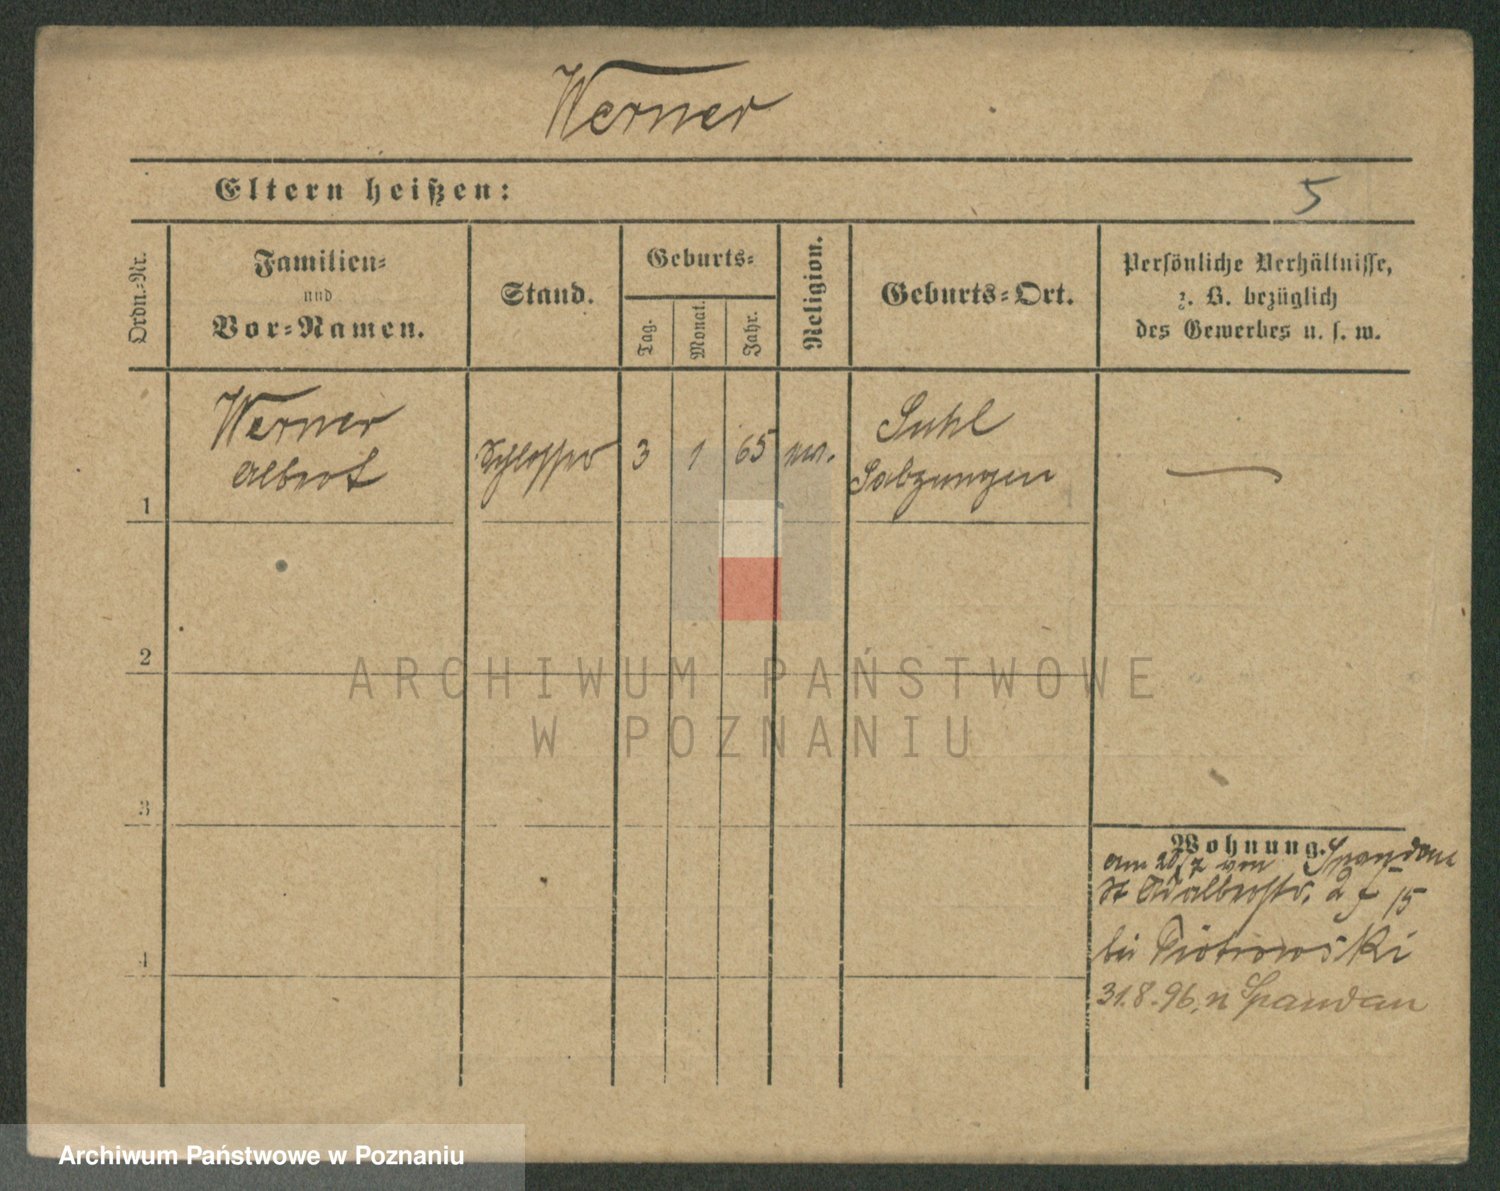 Werner
Eltern heißen:
5
Ordn.-Nr.
Familien-
und
Vor-Namen.
Stand.
Geburts-
Tag.
Monat.
Jahr.
Religion.
Geburts-Ort.
Persönliche Verhältnisse,
z. B. bezüglich
des Gewerbes u. s. w.
1
Werner
Albert
Schlosser
3
1
65
ev.
Suhl
Salzungen
2
3
4
Wohnung.
am 20/7 von Spandau
St Adalbertstr. 2
15
bei Piotrowski
31.8.96. n Spandau
ARCHIWUM PAŃSTWOWE
W POZNANIU
Archiwum Państwowe w Poznaniu